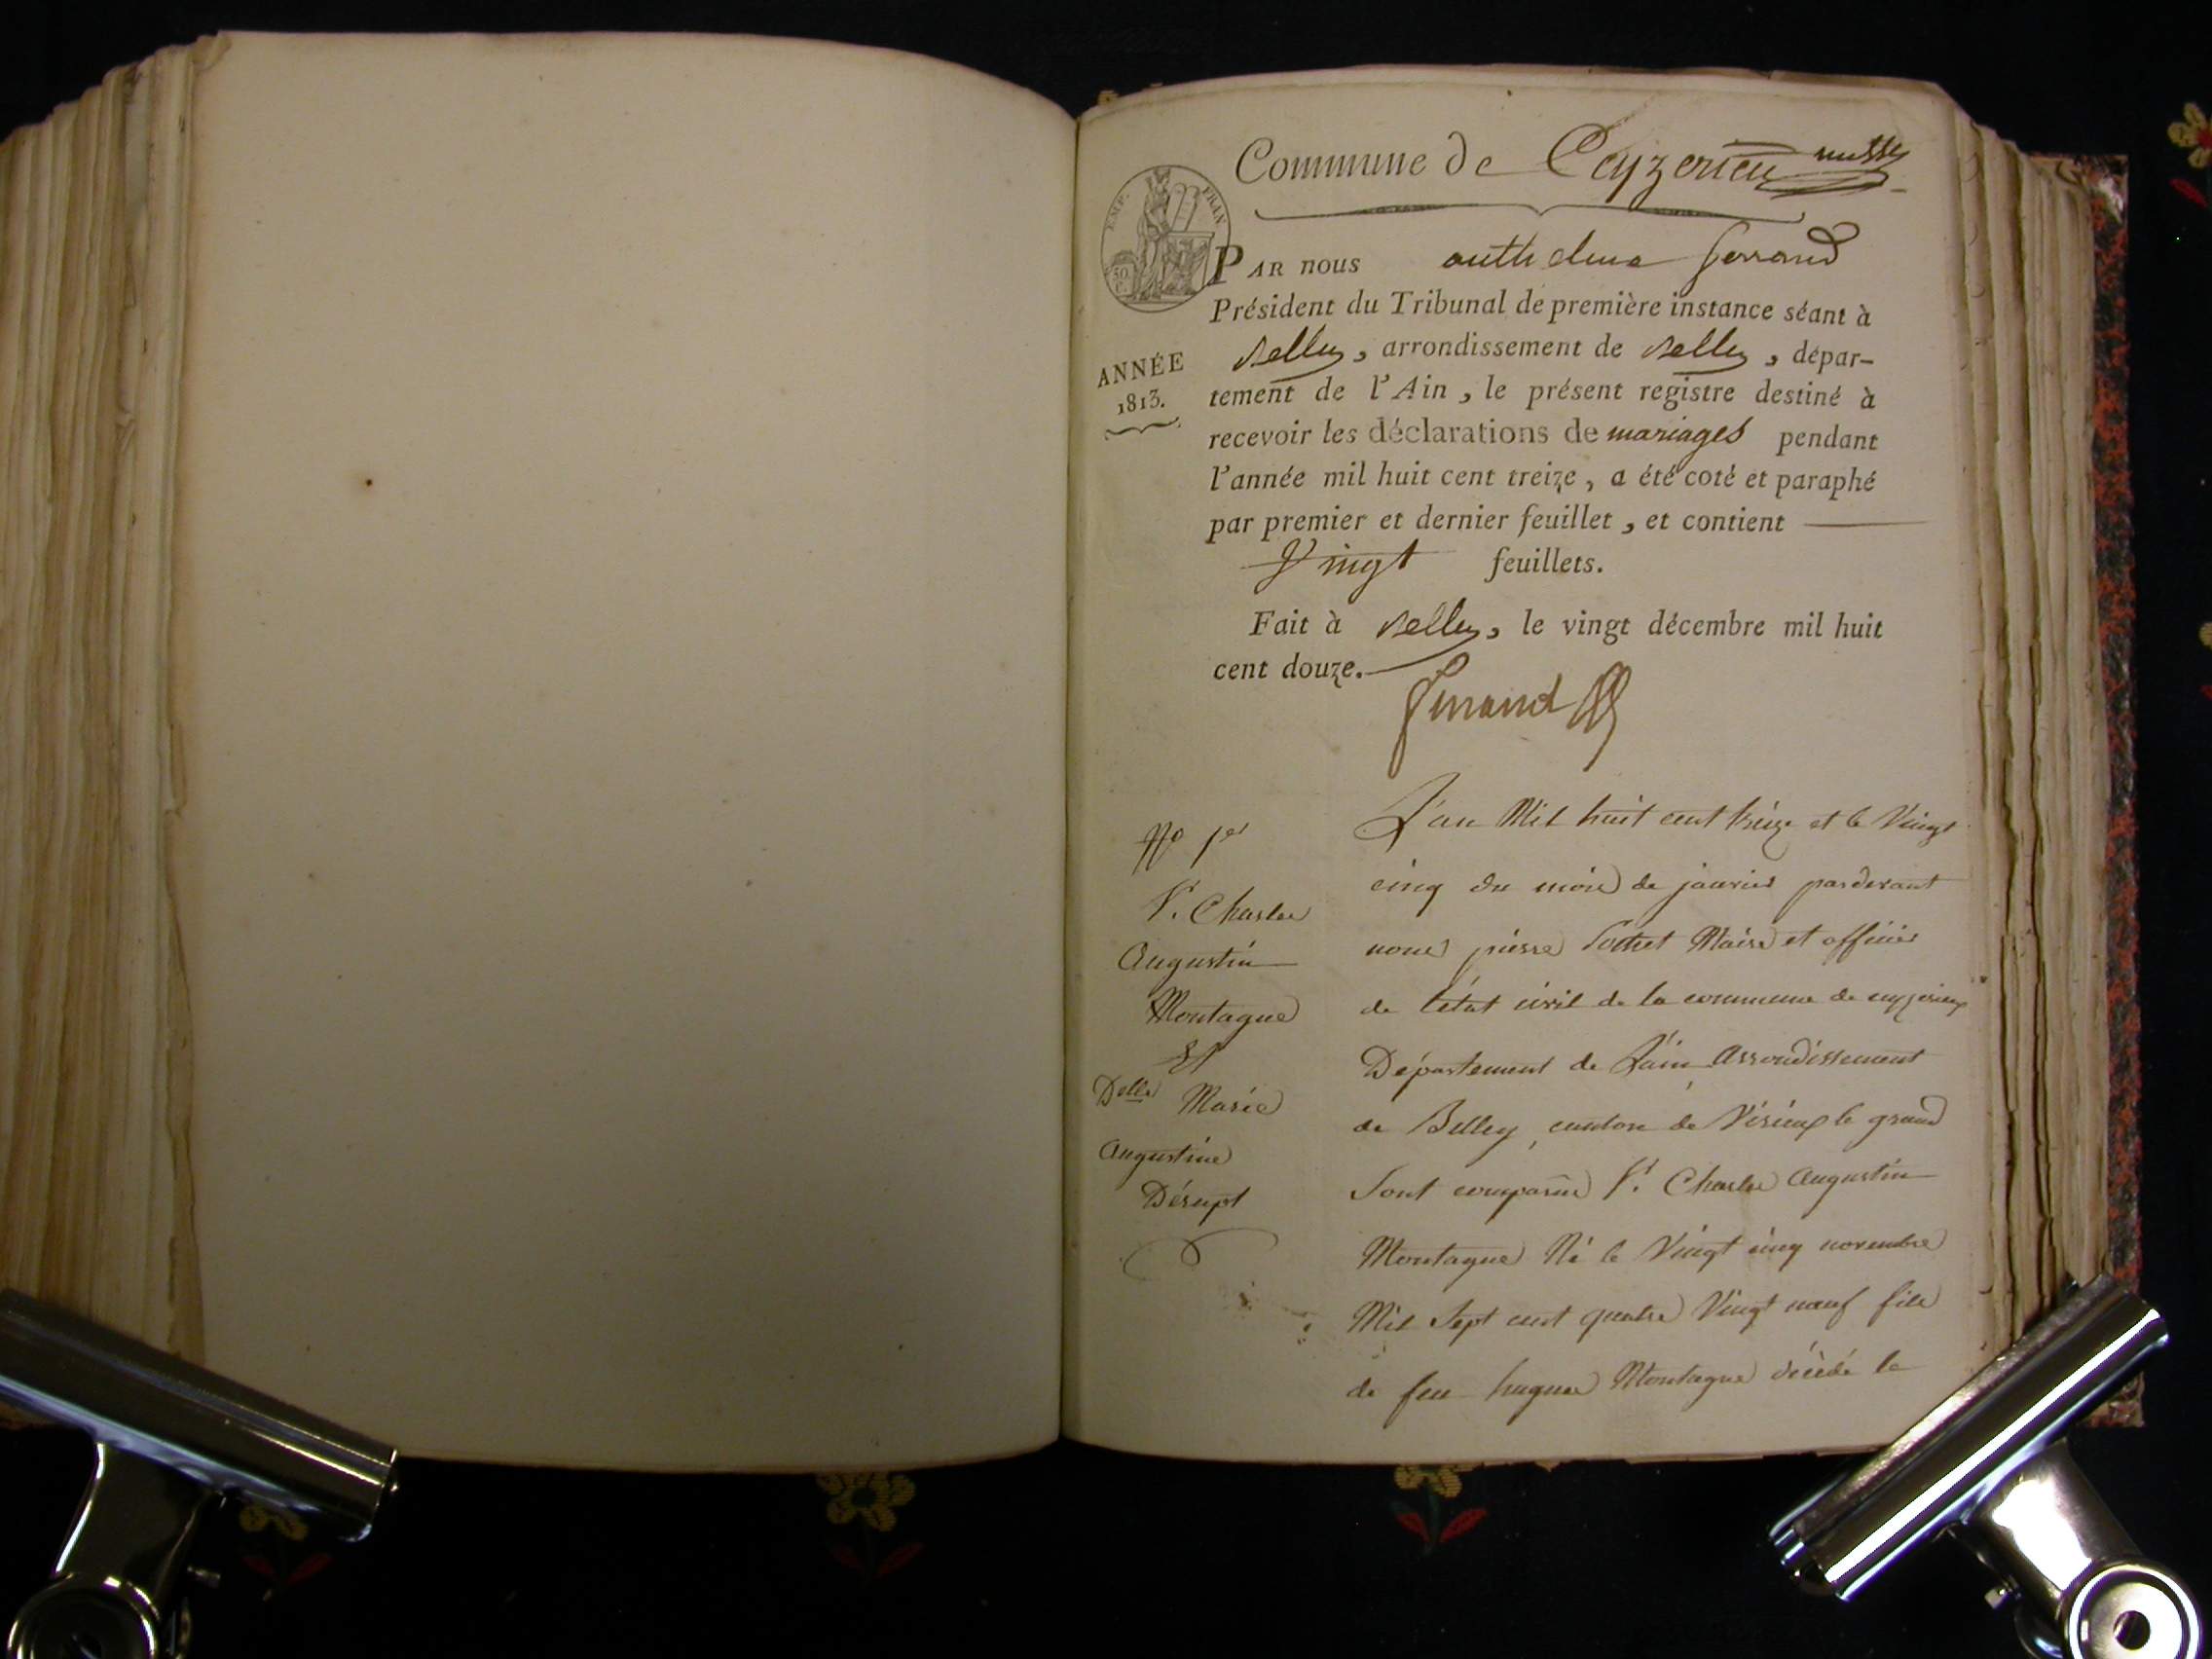 Commune de Ceyzerieu
EMP. FRAN
50
C.
PAR nous anthelme ferrand
Président du Tribunal de première instance séant à
Belley, arrondissement de Belley, dépar-
tement de l'Ain, le présent registre destiné à
recevoir les déclarations de mariages pendant
l'année mil huit cent treize, a été coté et paraphé
par premier et dernier feuillet, et contient
Vingt feuillets.
Fait à Belley, le vingt décembre mil huit
cent douze.
ferrand
ANNÉE
1813.
No 1er
Sr. Charles
Augustin
Montagne
Et
Delle Marie
Augustine
L'an Mil huit cent treize et le Vingt
cinq du mois de janvier pardevant
nous pierre Maire et officier
de l'état civil de la commune de ceyzerieux
Département de L'ain Arrondissement
de Belley, canton de Virieux le grand
Sont comparus Sr. Charles Augustin
Montagne Né le Vingt cinq novembre
Mil Sept cent quatre Vingt neuf fils
de feu hugues Montagne décédé le